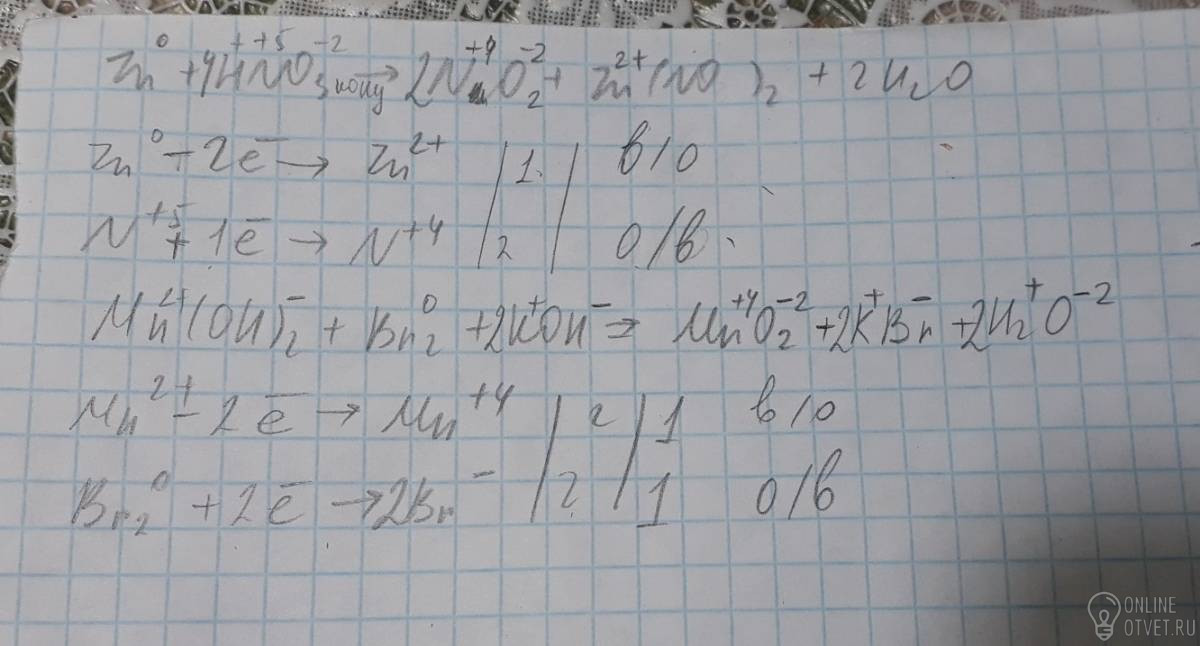 Zn⁰ + 4H⁺N⁺⁵O₃⁻² конц → 2N⁺⁴O₂⁻² + Zn²⁺(NO )₂ + 2H₂O
Zn⁰ − 2ē → Zn²⁺ | 1 | в/о
N⁺⁵ + 1ē → N⁺⁴ | 2 | о/в
Mn²⁺(OH)₂⁻ + Br₂⁰ + 2K⁺OH⁻ = Mn⁺⁴O₂⁻² + 2K⁺Br⁻ + 2H₂⁺O⁻²
Mn²⁺ − 2ē → Mn⁺⁴ | 2 | 1 в/о
Br₂⁰ + 2ē → 2Br⁻ | 2 | 1 о/в
ONLINE
OTVET.RU